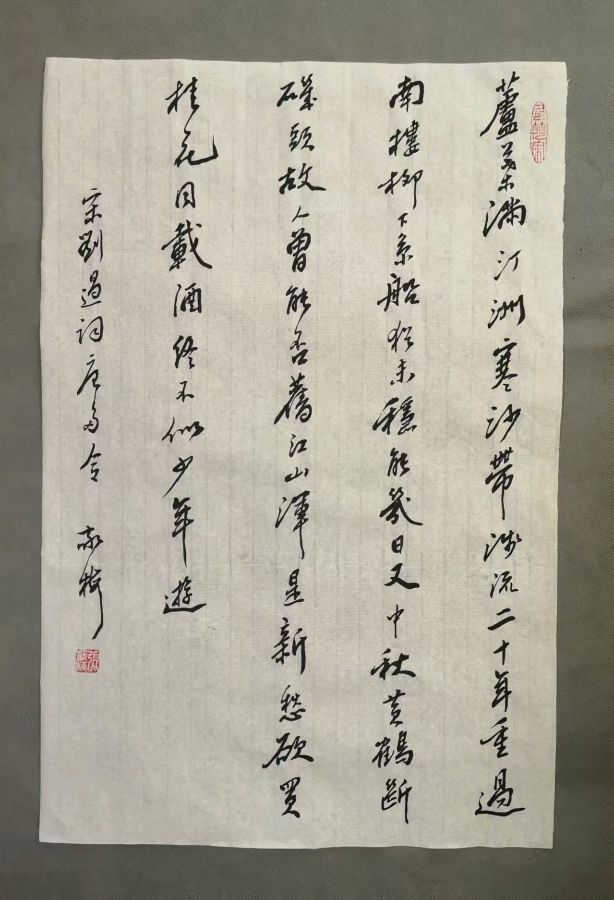 蘆葉滿汀洲寒沙帶淺流二十年重過
南樓柳下系船猶未穩能幾日又中秋黃鶴斷
磯頭故人曾能否舊江山渾是新愁欲買
桂花同載酒終不似少年遊
宋劉過詞唐多令